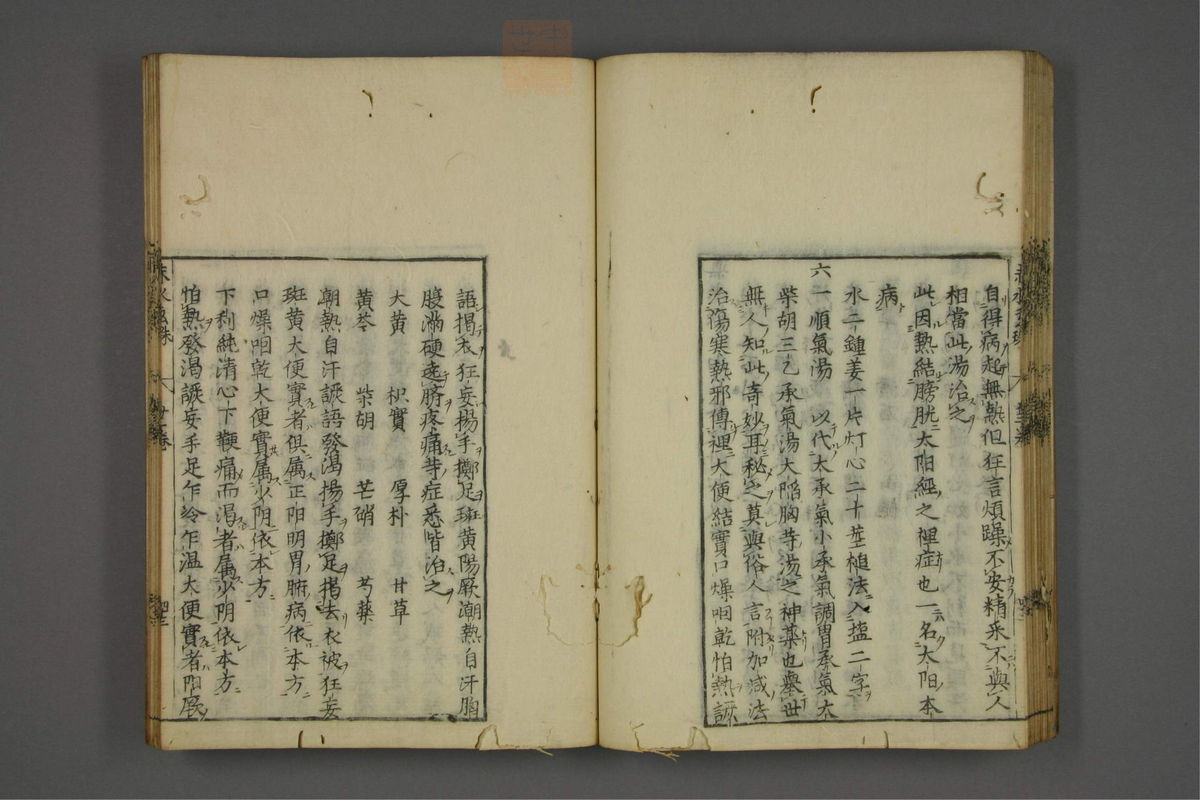 自得病起無熱但狂言煩躁不安精采不與人
相當此湯治之
此因熱結膀胱太阳經之裡症也一名太阳本
病
水二鍾姜一片灯心二十莖槌法入塩二字
六一順氣湯 以代大承氣小承氣調胃承氣大
柴胡三乙承氣湯大陷胸等湯之神藥也舉世
無人知此奇妙耳秘之莫與俗人言附加減法
治傷寒熱邪傳裡大便結實口燥咽乾怕熱譫
語揭衣狂妄揚手擲足斑黃陽厥潮熱自汗胸
腹滿硬遶臍疼痛等症悉皆治之
大黃 枳實 厚朴 甘草
黃芩 柴胡 芒硝 芍藥
朝熱自汗譫語發渴揚手擲足揭去衣被狂妄
斑黃大便實者俱属正阳明胃腑病依本方
口燥咽乾大便實属少阴依本方
下利純清心下鞕痛而渴者属少阴依本方
怕熱發渴譫妄手足乍冷乍温大便實者阳厥